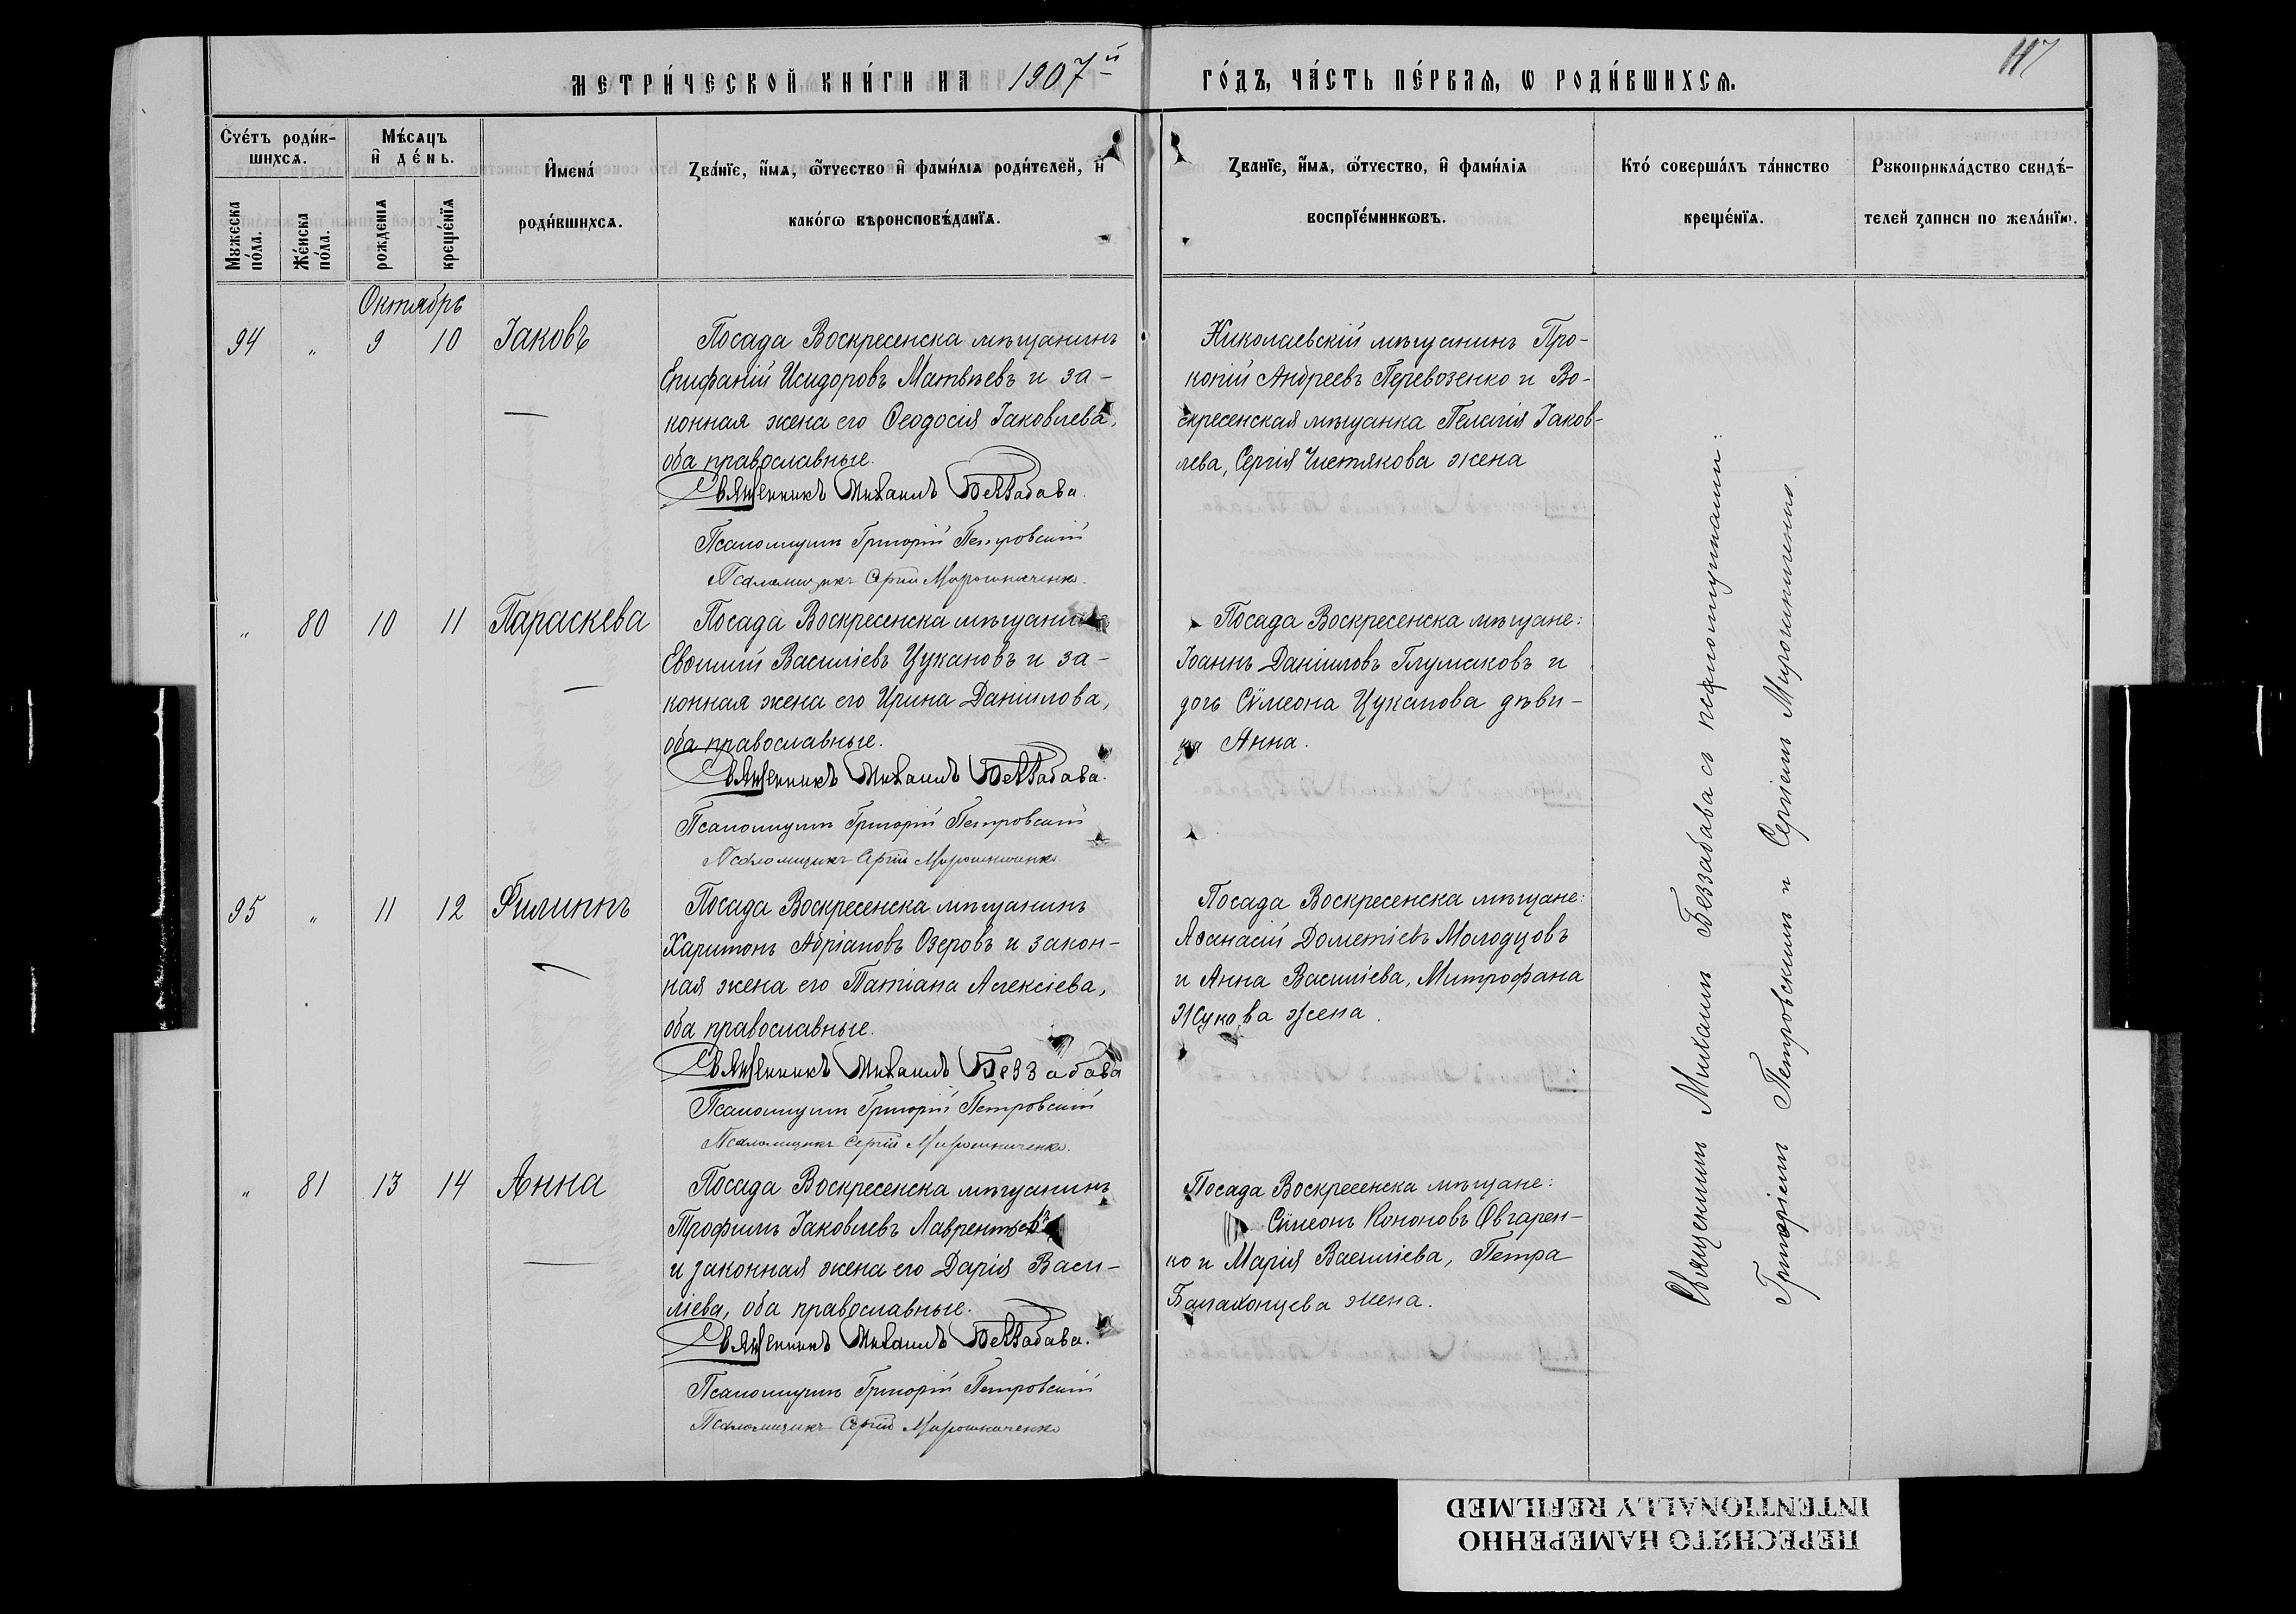 МЕТРИ́ЧЕСКОЙ КНИ́ГИ НА 1907й
ГО́ДЪ, ЧА́СТЬ ПЕ́РВАЯ, Ѡ РОДИ́ВШИХСѦ.
117
Сче́тъ роди́в-
шихсѧ.
Мꙋжеска
по́ла.
Же́нска
по́ла.
Мѣ́сѧцъ
и҆ де́нь.
рожденїѧ
креще́нїѧ
И҆мена́
роди́вшихсѧ.
Зва́нїе, и҆́мѧ, ѻ҆́тчество и҆ фами́лїѧ роди́телей, и҆
како́гѡ вѣроисповѣ́данїѧ.
Званїе, и҆́мѧ, ѻ҆́тчество, и҆ фами́лїѧ
воспрїе́мникѡвъ.
Кто́ соверша́лъ та́инство
креще́нїѧ.
Рꙋкоприкла́дство свидѣ́-
телей записи по жела́нїю.
Октябрь
94 " 9 10 Іаковъ
Посада Воскресенска мѣщанинъ
Епифаній Исидоровъ Матвѣевъ и за-
конная жена его Ѳеодосія Іаковлева,
оба православные.
Священникъ Михаилъ Беззабава.
Псаломщикъ Григорій Петровскій
Псаломщикъ Сергій Мирошниченко.
Николаевскій мѣщанинъ Про-
копій Андреевъ Перевозенко и Во-
скресенская мѣщанка Пелагія Іаков-
лева, Сергія Чистякова жена
" 80 10 11 Параскева
Посада Воскресенска мѣщанинъ
Евѳимій Василіевъ Цукановъ и за-
конная жена его Ирина Даніилова,
оба православные.
Священникъ Михаилъ Беззабава.
Псаломщикъ Григорій Петровскій
Псаломщикъ Сергій Мирошниченко
Посада Воскресенска мѣщане:
Іоаннъ Даніиловъ Глумаковъ и
дочь Сѵмеона Цуканова дѣви-
ца Анна.
95 " 11 12 Филиппъ
Посада Воскресенска мѣщанинъ
Харитонъ Адріановъ Озеровъ и закон-
ная жена его Татіана Алексіева,
оба православные.
Священникъ Михаилъ Беззабава
Псаломщикъ Григорій Петровскій
Псаломщикъ Сергій Мирошниченко.
Посада Воскресенска мѣщане:
Аѳанасій Дометіевъ Молодцовъ
и Анна Василіева, Митрофана
Жукова жена.
" 81 13 14 Анна
Посада Воскресенска мѣщанинъ
Трофимъ Іаковлевъ Лаврентьевъ
и законная жена его Дарія Васи-
ліева, оба православные.
Священникъ Михаилъ Беззабава.
Псаломщикъ Григорій Петровскій
Псаломщикъ Сергій Мирошниченко
Посада Воскресенска мѣщане:
Сѵмеонъ Кононовъ Овчарен-
ко и Марія Василіева, Петра
Балахонцева жена.
Священникъ Михаилъ Беззабава съ псаломщиками:
Григоріемъ Петровскимъ и Сергіемъ Мирошниченко.
ПЕРЕСНЯТО НАМЕРЕННО
INTENTIONALLY REFILMED